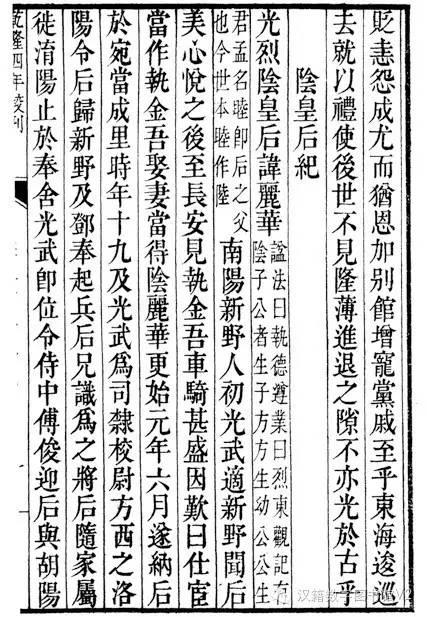 貶恚怨成尤而猶恩加別館增寵黨戚至乎東海逡巡
去就以禮使後世不見隆薄進退之隙不亦光於古乎
陰皇后紀
光烈陰皇后諱麗華
諡法曰執德遵業曰烈東觀記有
陰子公者生子方方生幼公公生
君孟名睦即后之父
也今世本睦作陸
南陽新野人初光武適新野聞后
美心悅之後至長安見執金吾車騎甚盛因歎曰仕宦
當作執金吾娶妻當得陰麗華更始元年六月遂納后
於宛當成里時年十九及光武爲司隸校尉方西之洛
陽令后歸新野及鄧奉起兵后兄識爲之將后隨家屬
徙淯陽止於奉舍光武即位令侍中傅俊迎后與胡陽
乾隆四年校刊
汉籍数字图书馆V2